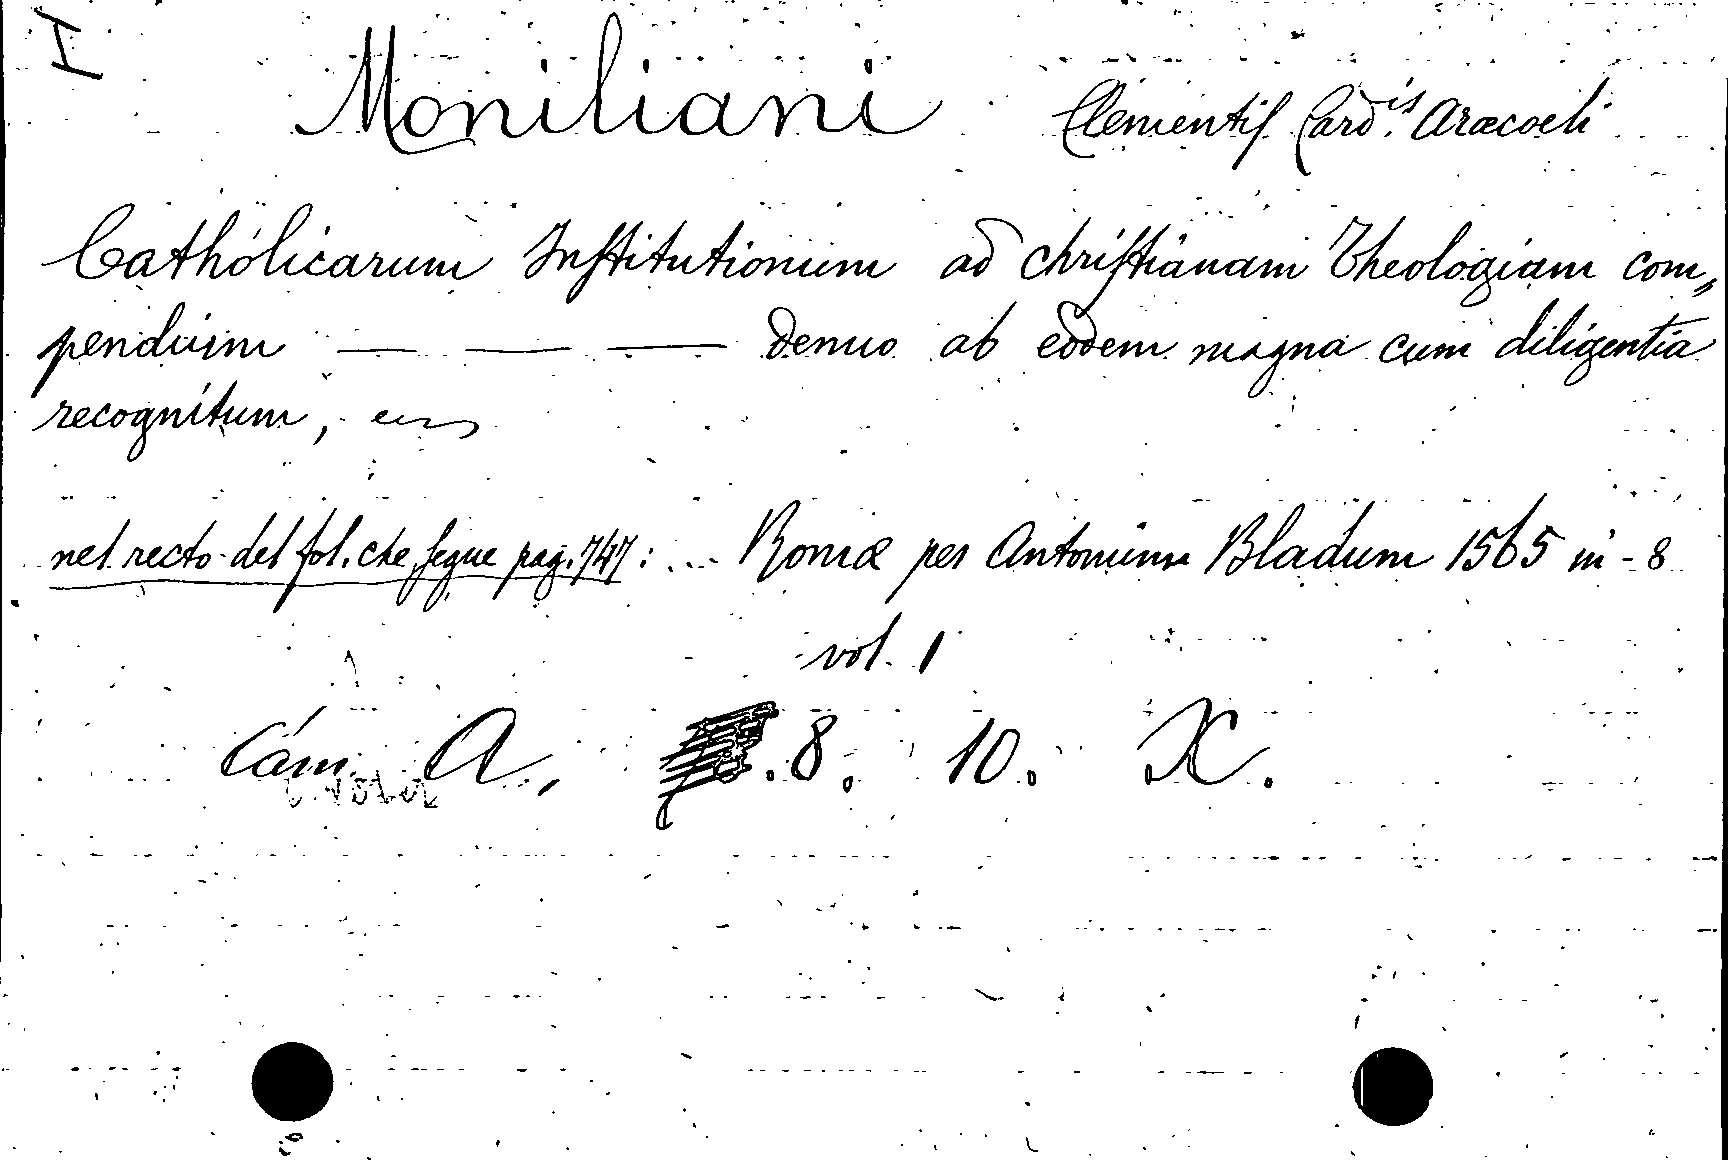 I
Moniliani Clementis Card.is Aracoeli
Catholicarum Institutionum ad christianam Theologiam com„
pendium — — — denuo ab eodem magna cum diligentia
recognitum,
nel recto del fol. che segue pag. 747: ... Romæ per Antonium Bladum 1565 in-8
vol. 1
Cám. A, .8. 10. X.